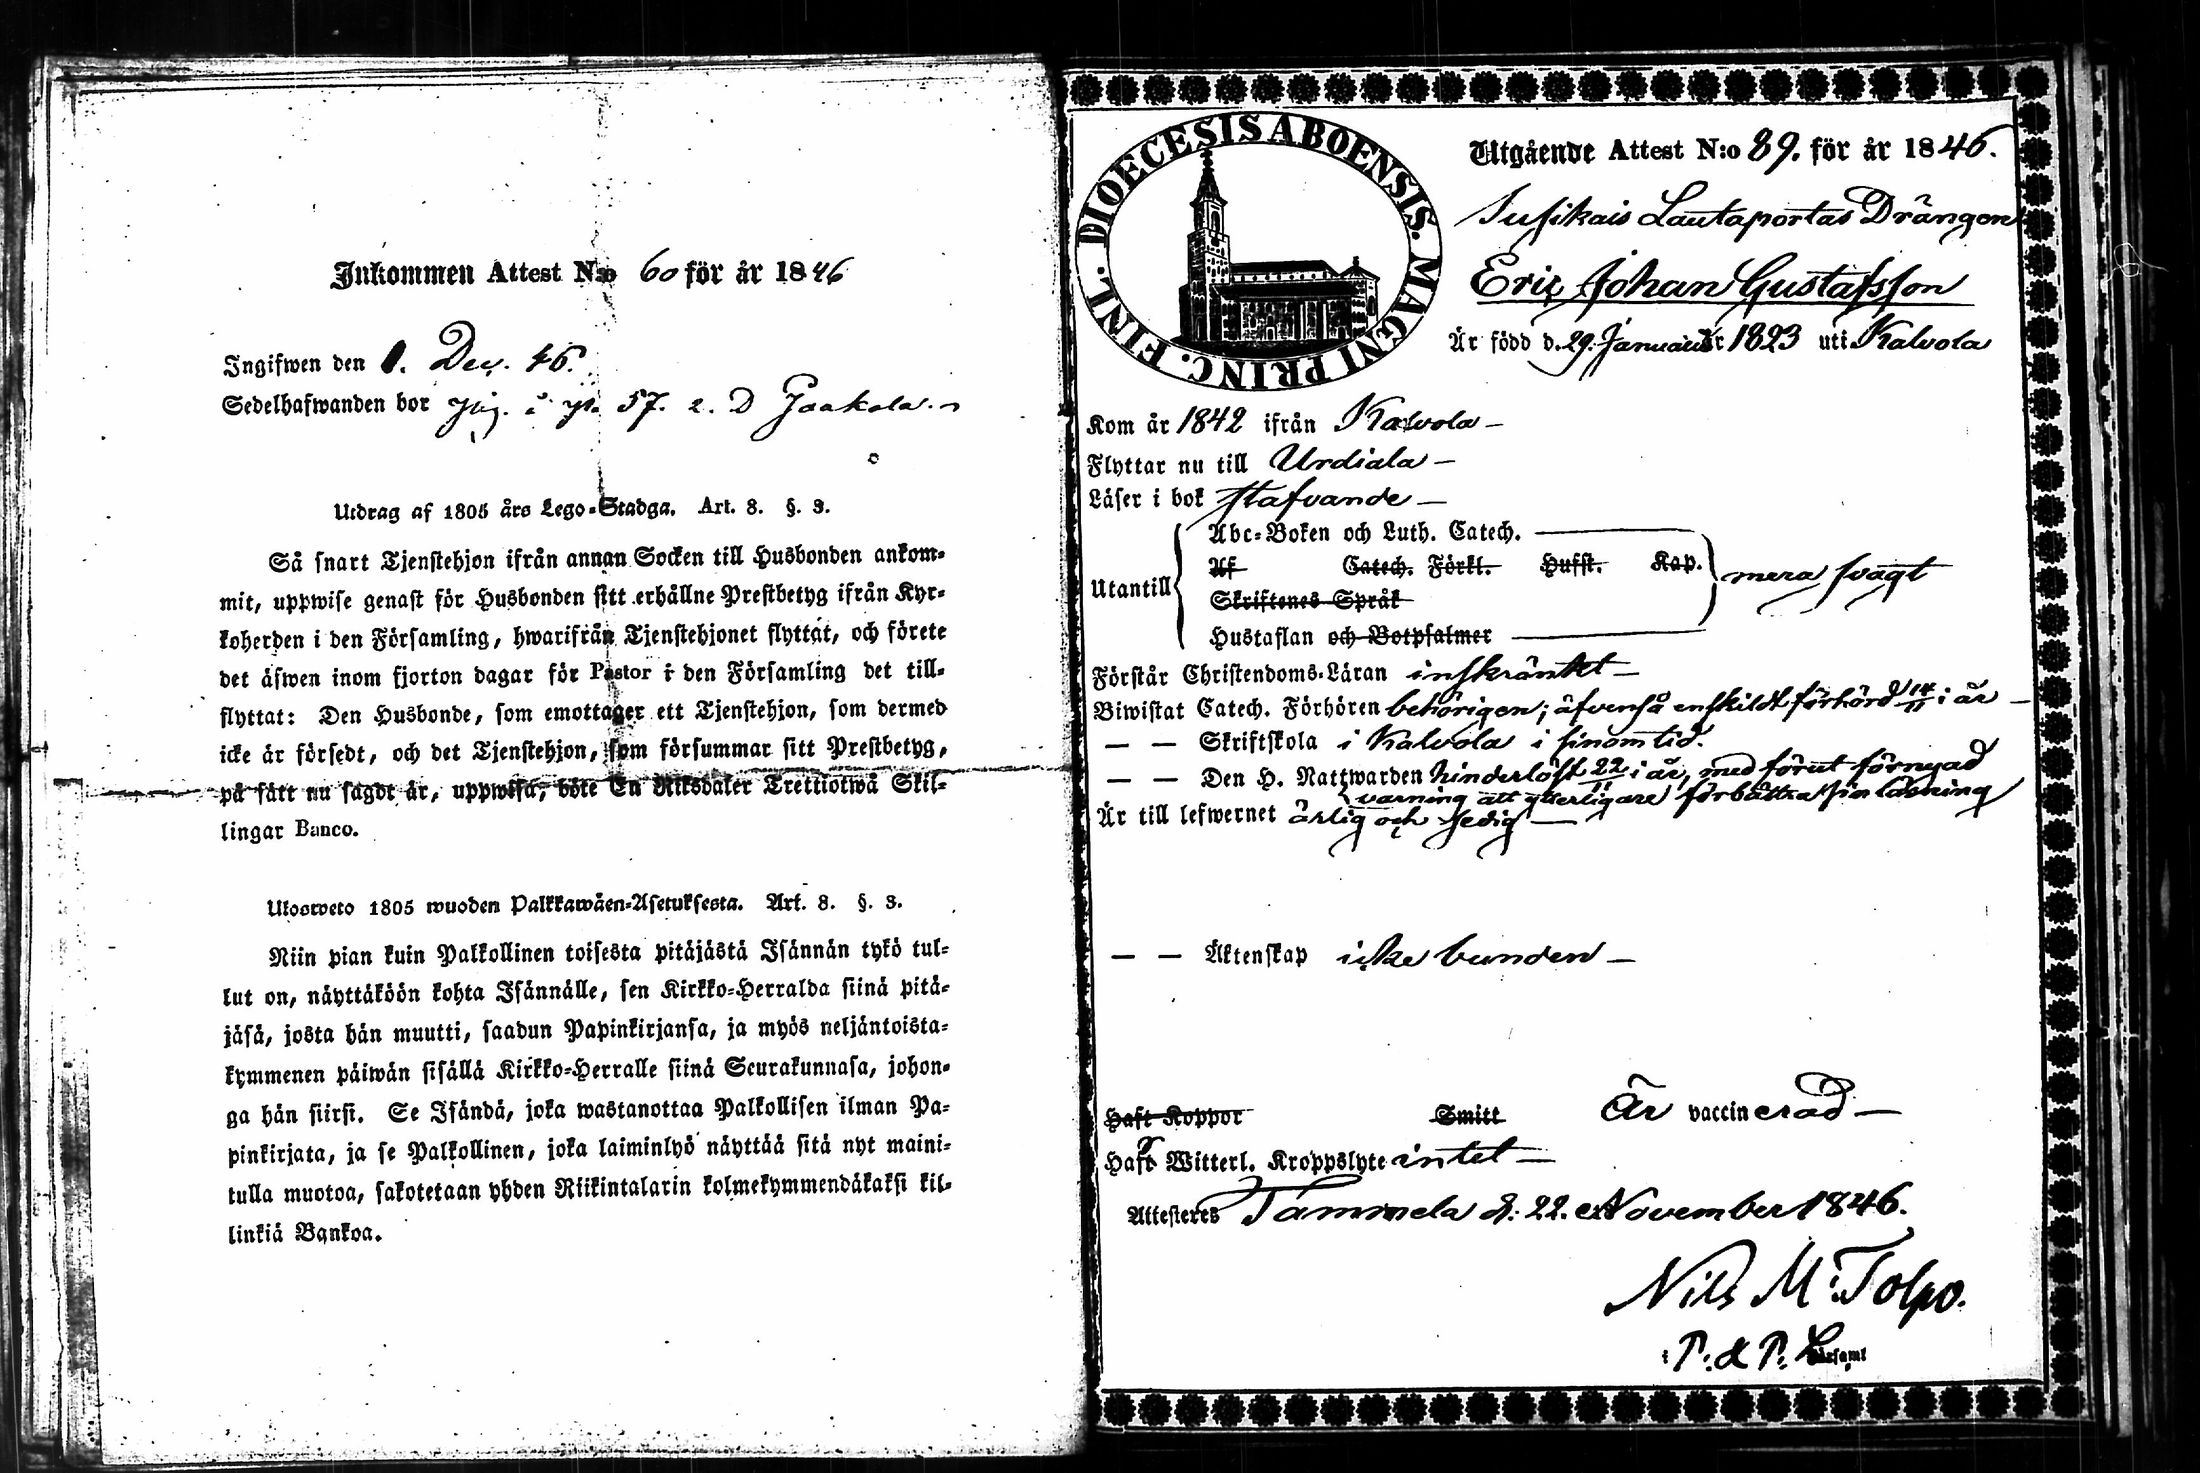 Inkommen Attest N:o 60 för år 1846
Ingifwen den 1. Dec. 46.
Sedelhafwanden bor i 57. 2. D Jaakola.
Utdrag af 1805 års Lego-Stadga. Art. 8. §. 3.
Så snart Tjenstehjon ifrån annan Socken till Husbonden ankom-
mit, uppwise genast för Husbonden sitt erhållne Prestbetyg ifrån Kyr-
koherden i den Församling, hwarifrån Tjenstehjonet flyttat, och förete
det äfwen inom fjorton dagar för Pastor i den Församling det till-
flyttat: Den Husbonde, som emottager ett Tjenstehjon, som dermed
icke är försedt, och det Tjenstehjon, som försummar sitt Prestbetyg,
på sätt nu sagdt är, uppwisa, böte En Riksdaler Trettiotwå Skil-
lingar Banco.
Ulosweto 1805 wuoden Palkkawäen-Asetuksesta. Art. 8. §. 3.
Niin pian kuin Palkollinen toisesta pitäjästä Isännän tykö tul-
lut on, näyttäköön kohta Isännälle, sen Kirkko-Herralda siinä pitä-
jäsä, josta hän muutti, saadun Papinkirjansa, ja myös neljäntoista-
kymmenen päiwän sisällä Kirkko-Herralle siinä Seurakunnasa, johon-
ga hän siirsi. Se Isändä, joka wastanottaa Palkollisen ilman Pa-
pinkirjata, ja se Palkollinen, joka laiminlyö näyttää sitä nyt maini-
tulla muotoa, sakotetaan yhden Riikintalarin kolmekymmendäkaksi kil-
linkiä Bankoa.
DIOECESIS ABOENSIS. MAGNI PRINC. FINL.
Utgående Attest N:o 89. för år 1846.
Susikais Lautaportas Drängen
Eric Johan Gustafsson
Är född d. 29. Januarii år 1823 uti Kalvola
Kom år 1842 ifrån Kalvola –
Flyttar nu till Urdiala –
Läser i bok stafvande –
Abc-Boken och Luth. Catech.
Af Catech. Förkl. Husst. Kap.
Utantill mera svagt
Skriftenes Språk
Hustaflan och Botpsalmer
Förstår Christendoms-Läran inskränktet –
Biwistat Catech. Förhören behörigen; äfvenså enskildt förhörd 14/11 i år –
— — Skriftskola i Kalvola i sinom tid.
— — Den H. Nattwarden hinderlöst 22/11 i år, med förut förnyad
varning att ytterligare förbättra sin läsning
Är till lefwernet ärlig och sedig —
— — Äktenskap icke bunden –
Haft Koppor Smitt Är vaccinerad –
Haf Witterl. Kroppslyte intet –
Attesteres Tammela d. 22. November 1846.
Nils M. Tolpo.
i P. & P. Församl